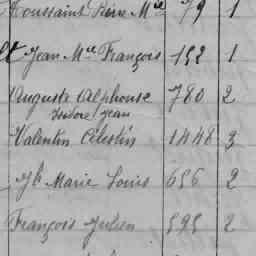 Toussaint Pierre Mie 79 1
et Jean Mie François 152 1
Auguste Alphonse 780 2
Isidore Jean
Valentin Célestin 1448 3
Jh Marie Louis 656 2
François Julien 595 2